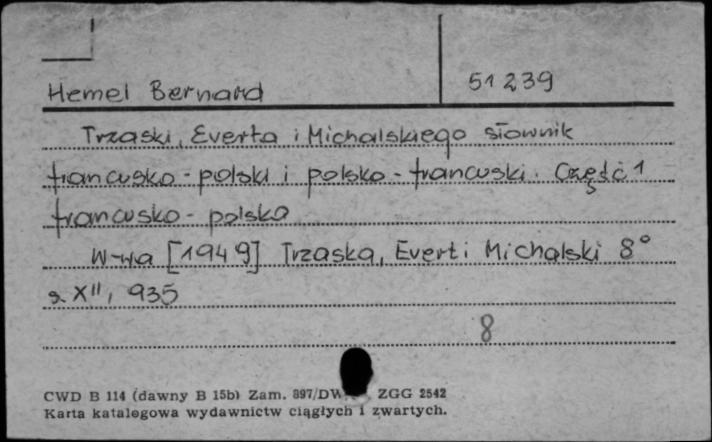 Hemel Bernard 51239
Trzaski, Everta i Michalskiego słownik
francusko - polski i polsko - francuski. Część 1
francusko - polska
W-wa [1949] Trzaska, Evert i Michalski 8°
s. XII, 935
8
CWD B 114 (dawny B 15b) Zam. 897/DW ZGG 2542
Karta katalogowa wydawnictw ciągłych i zwartych.